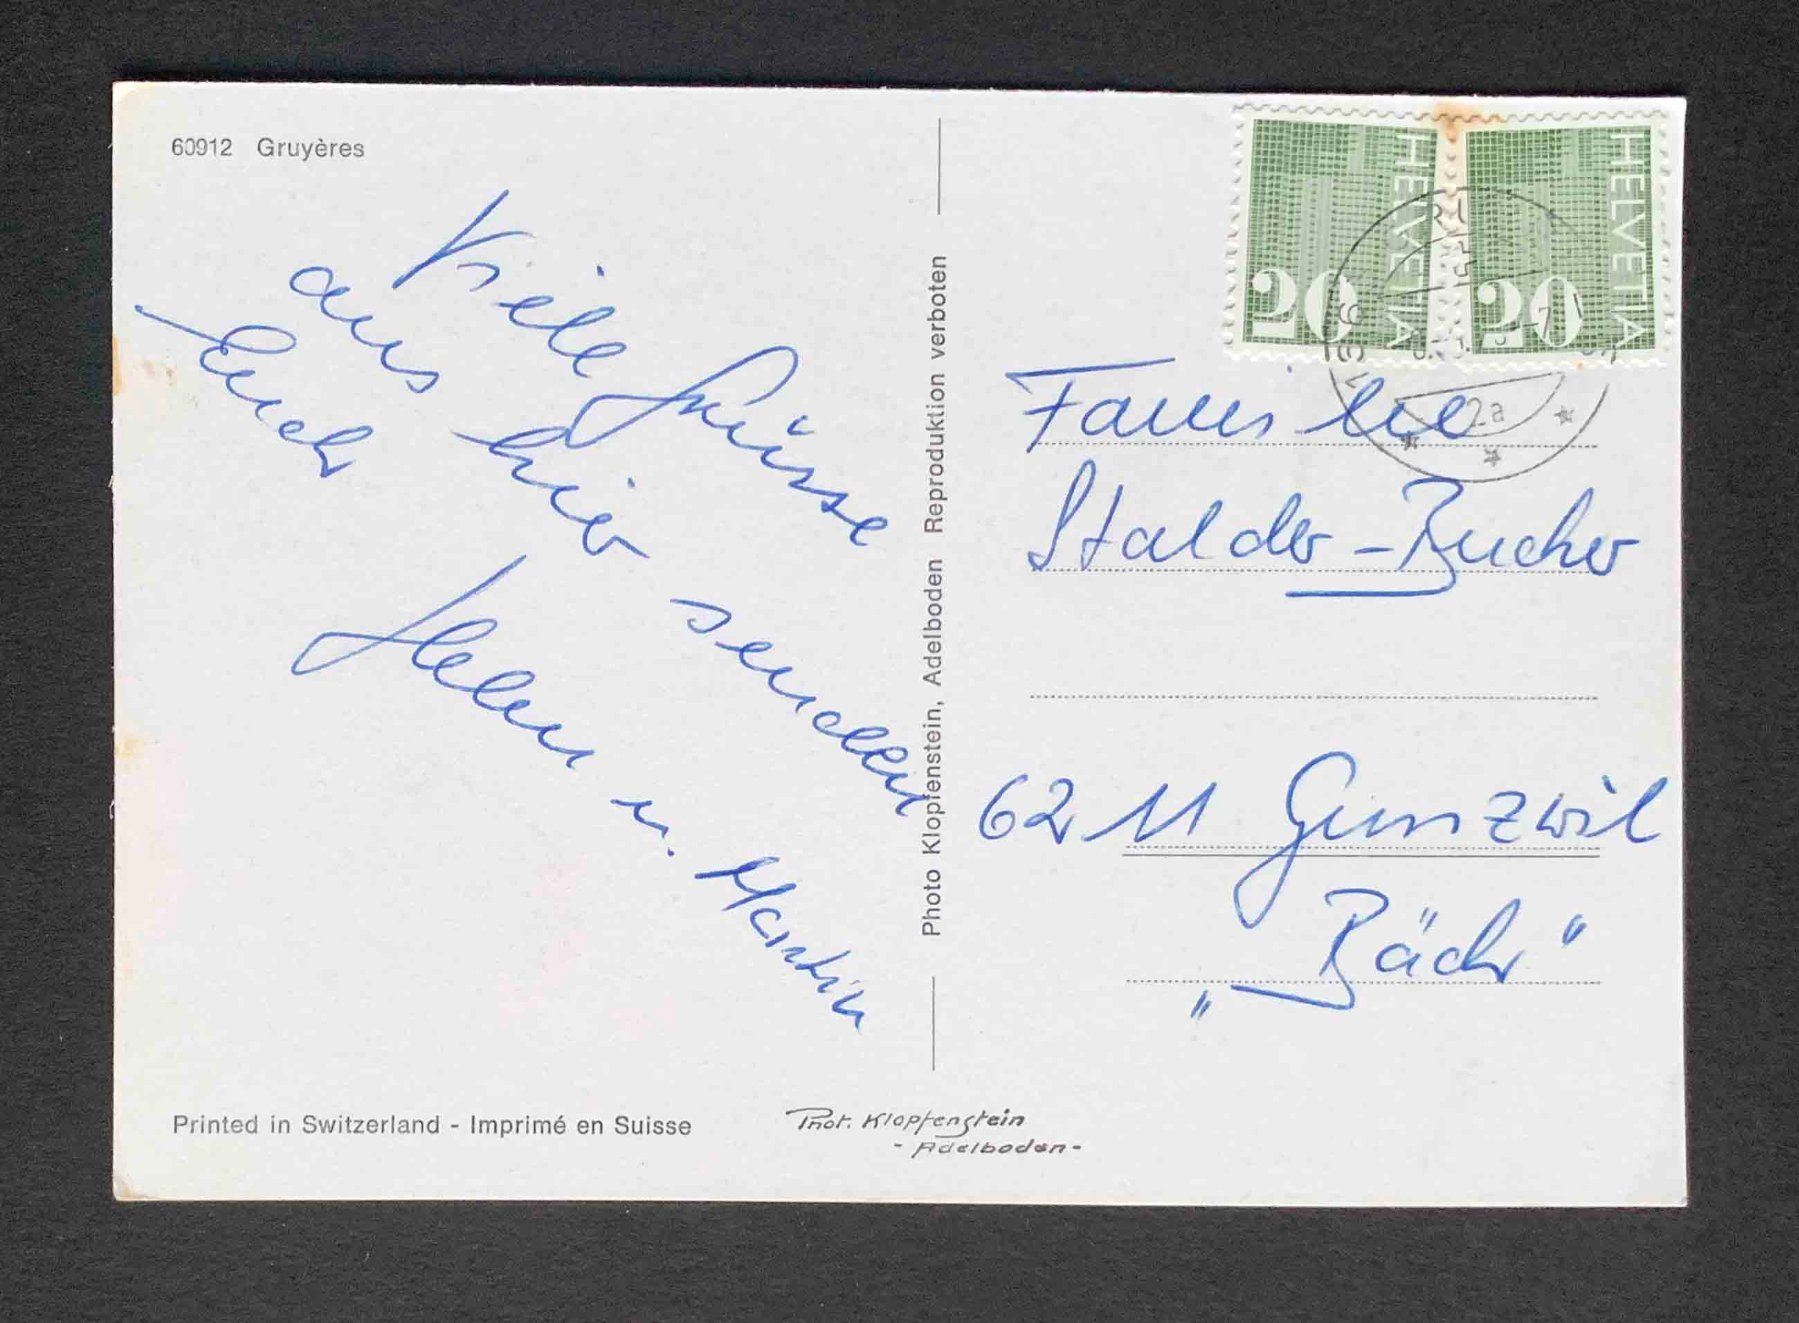 60912 Gruyères
Viele Grüsse
aus hier senden
Euch
Helen u. Martin
Photo Klopfenstein, Adelboden Reproduktion verboten
HELVETIA
20
HELVETIA
20
2a
Familie
Stalder-Bucher
6211 Gunzwil
„Bäch"
Printed in Switzerland - Imprimé en Suisse
Phot. Klopfenstein
- Adelboden -